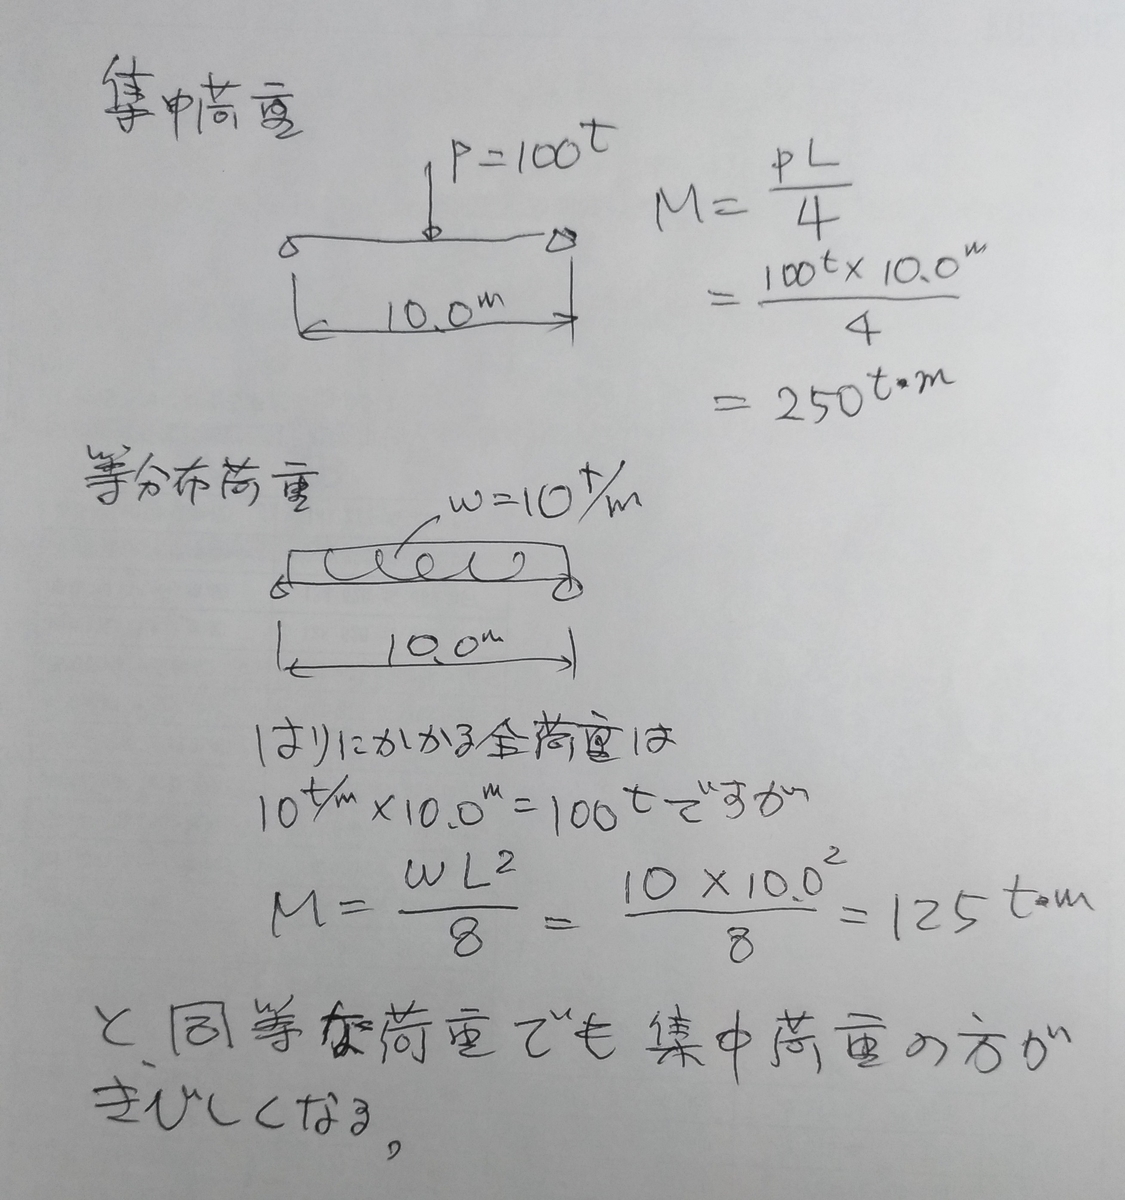 集中荷重
P=100t
M= PL/4
10.0m
= 100t×10.0m/4
= 250t・m
等分布荷重
w=10t/m
10.0m
はりにかかる全荷重は
10t/m×10.0m=100tですが
M= wL²/8 = 10×10.0²/8 =125t・m
と、同等な荷重でも集中荷重の方が
きびしくなる。